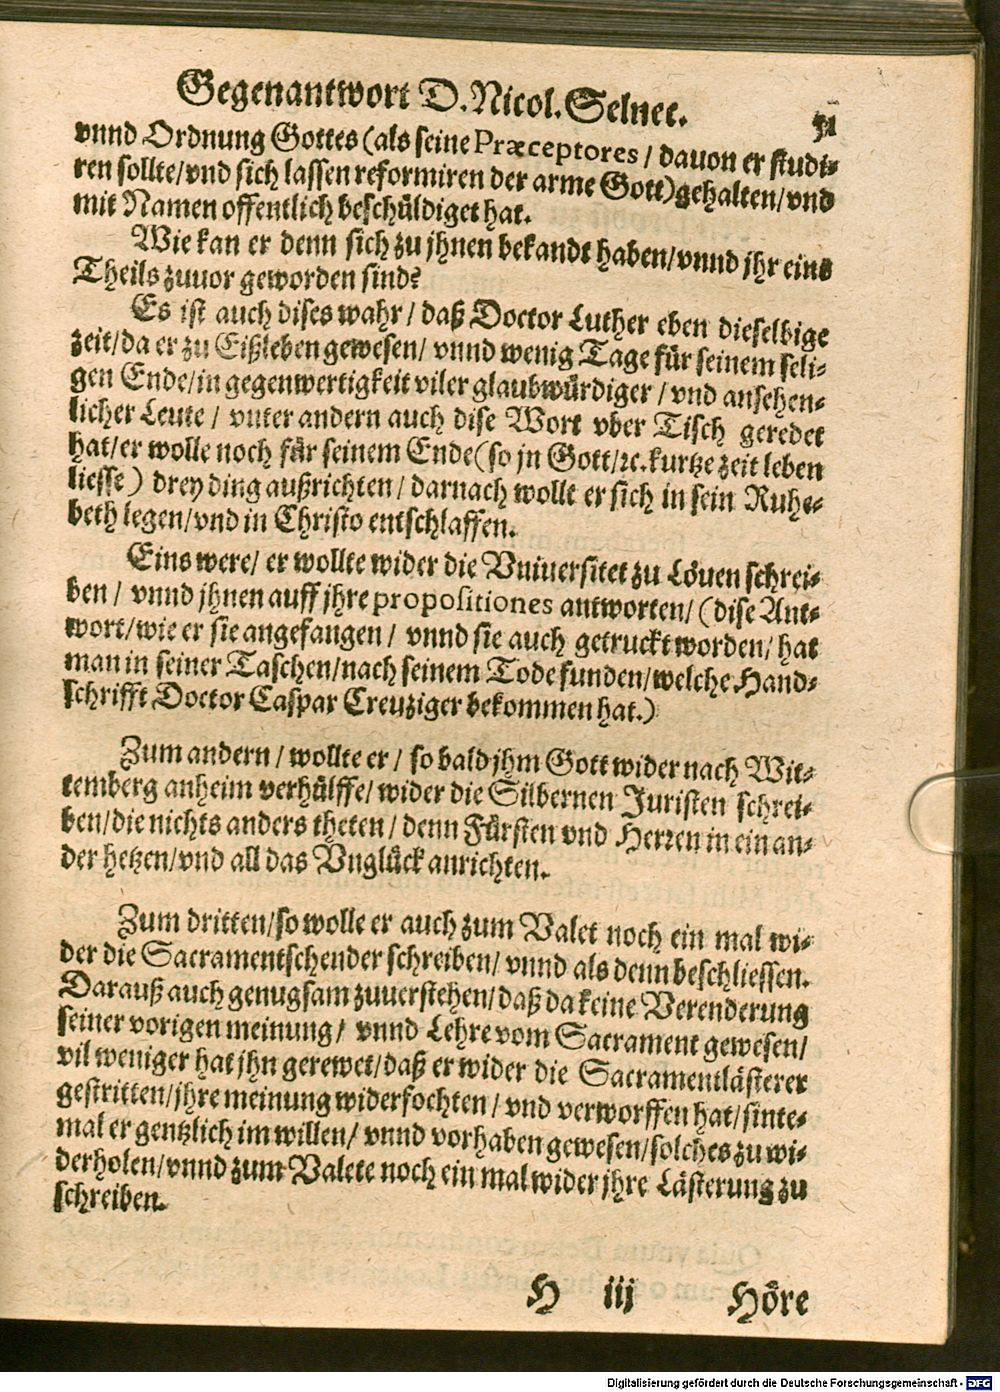 Gegenantwort D. Nicol. Selnec.
31
vnnd Ordnung Gottes (als seine Præceptores / dauon er studi-
ren sollte/vnd sich lassen reformiren der arme Gott) gehalten/vnd
mit Namen offentlich beschüldiget hat.
Wie kan er denn sich zu jhnen bekandt haben/vnnd jhr eins
Theils zuuor geworden sind?
Es ist auch dises wahr / daß Doctor Luther eben dieselbige
zeit/da er zu Eißleben gewesen/ vnnd wenig Tage für seinem seli-
gen Ende/in gegenwertigkeit viler glaubwürdiger / vnd ansehen-
licher Leute / vnter andern auch dise Wort vber Tisch geredet
hat/er wolle noch für seinem Ende (so jn Gott/ꝛc. kurtze zeit leben
liesse) drey ding außrichten / darnach wollt er sich in sein Ruhe-
beth legen/vnd in Christo entschlaffen.
Eins were/ er wollte wider die Vniuersitet zu Löuen schrei-
ben / vnnd jhnen auff jhre propositiones antworten/ (dise Ant-
wort/wie er sie angefangen / vnnd sie auch getruckt worden/ hat
man in seiner Taschen/nach seinem Tode funden/welche Hand-
schrifft Doctor Caspar Creuziger bekommen hat.)
Zum andern / wollte er / so bald jhm Gott wider nach Wit-
temberg anheim verhülffe/ wider die Silbernen Juristen schrei-
ben/die nichts anders theten / denn Fürsten vnd Herren in ein an-
der hetzen/vnd all das Vnglück anrichten.
Zum dritten/so wolle er auch zum Valet noch ein mal wi-
der die Sacramentschender schreiben/ vnnd als denn beschliessen.
Darauß auch genugsam zuuerstehen/daß da keine Verenderung
seiner vorigen meinung / vnnd Lehre vom Sacrament gewesen/
vil weniger hat jhn gerewet/daß er wider die Sacramentlästerer
gestritten/jhre meinung widerfochten / vnd verworffen hat/sinte-
mal er gentzlich im willen/ vnnd vorhaben gewesen/solches zu wi-
derholen/vnnd zum Valete noch ein mal wider jhre Lästerung zu
schreiben.
H iij Höre
Digitalisierung gefördert durch die Deutsche Forschungsgemeinschaft - DFG